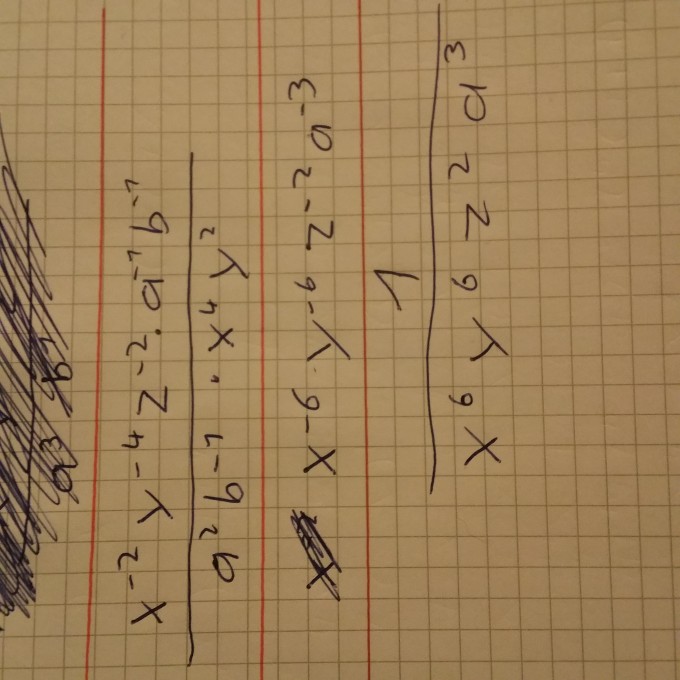 a³ b¹
x⁻² y⁻⁴ z⁻² · a⁻¹ b⁻¹
a² b⁻¹ · x⁴ y²
x⁻⁶ · y⁻⁶ z⁻² a⁻³
1
x⁶ y⁶ z² a³